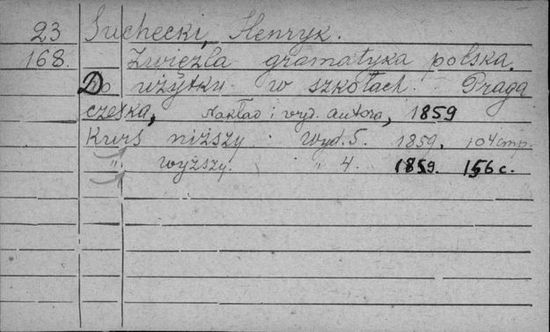 23 Suchecki, Henryk.
168. Zwięzła gramatyka polska.
Do użytku w szkołach. Praga
czeska, Nakład i wyd. autora, 1859
Kurs niższy. Wyd. 5. 1859. 104 стр.
" wyższy. " 4. 1859. 156 с.